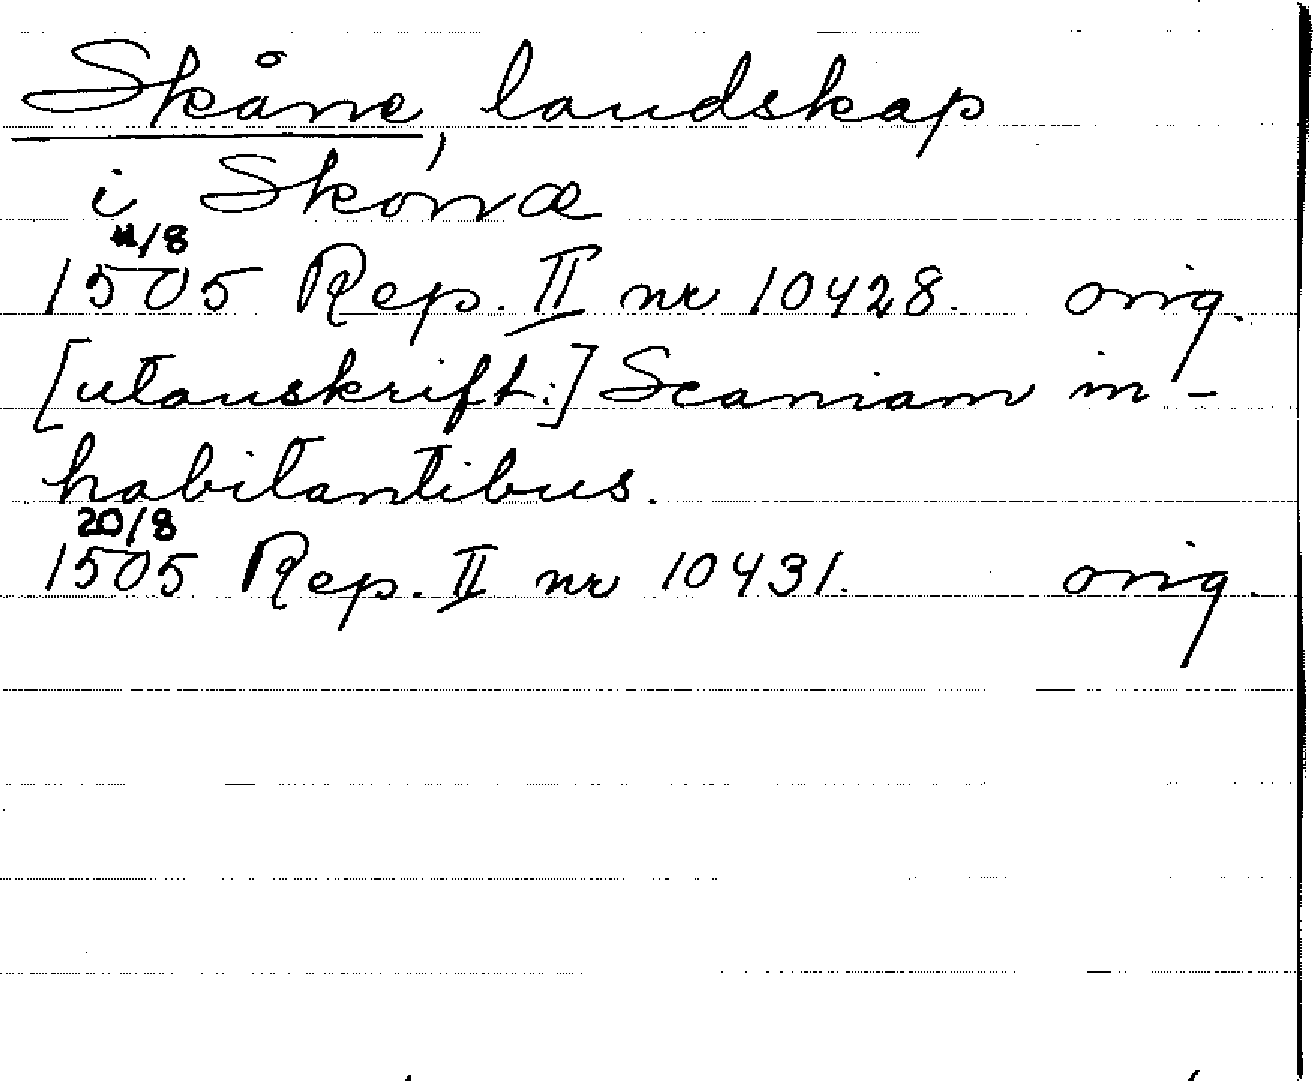 Skåne, landskap
i Skonæ
/8
1505 Rep. II nr 10428. orig.
[utanskrift:] Scaniam in-
habitantibus.
20/8
1505 Rep. II nr 10431. orig.